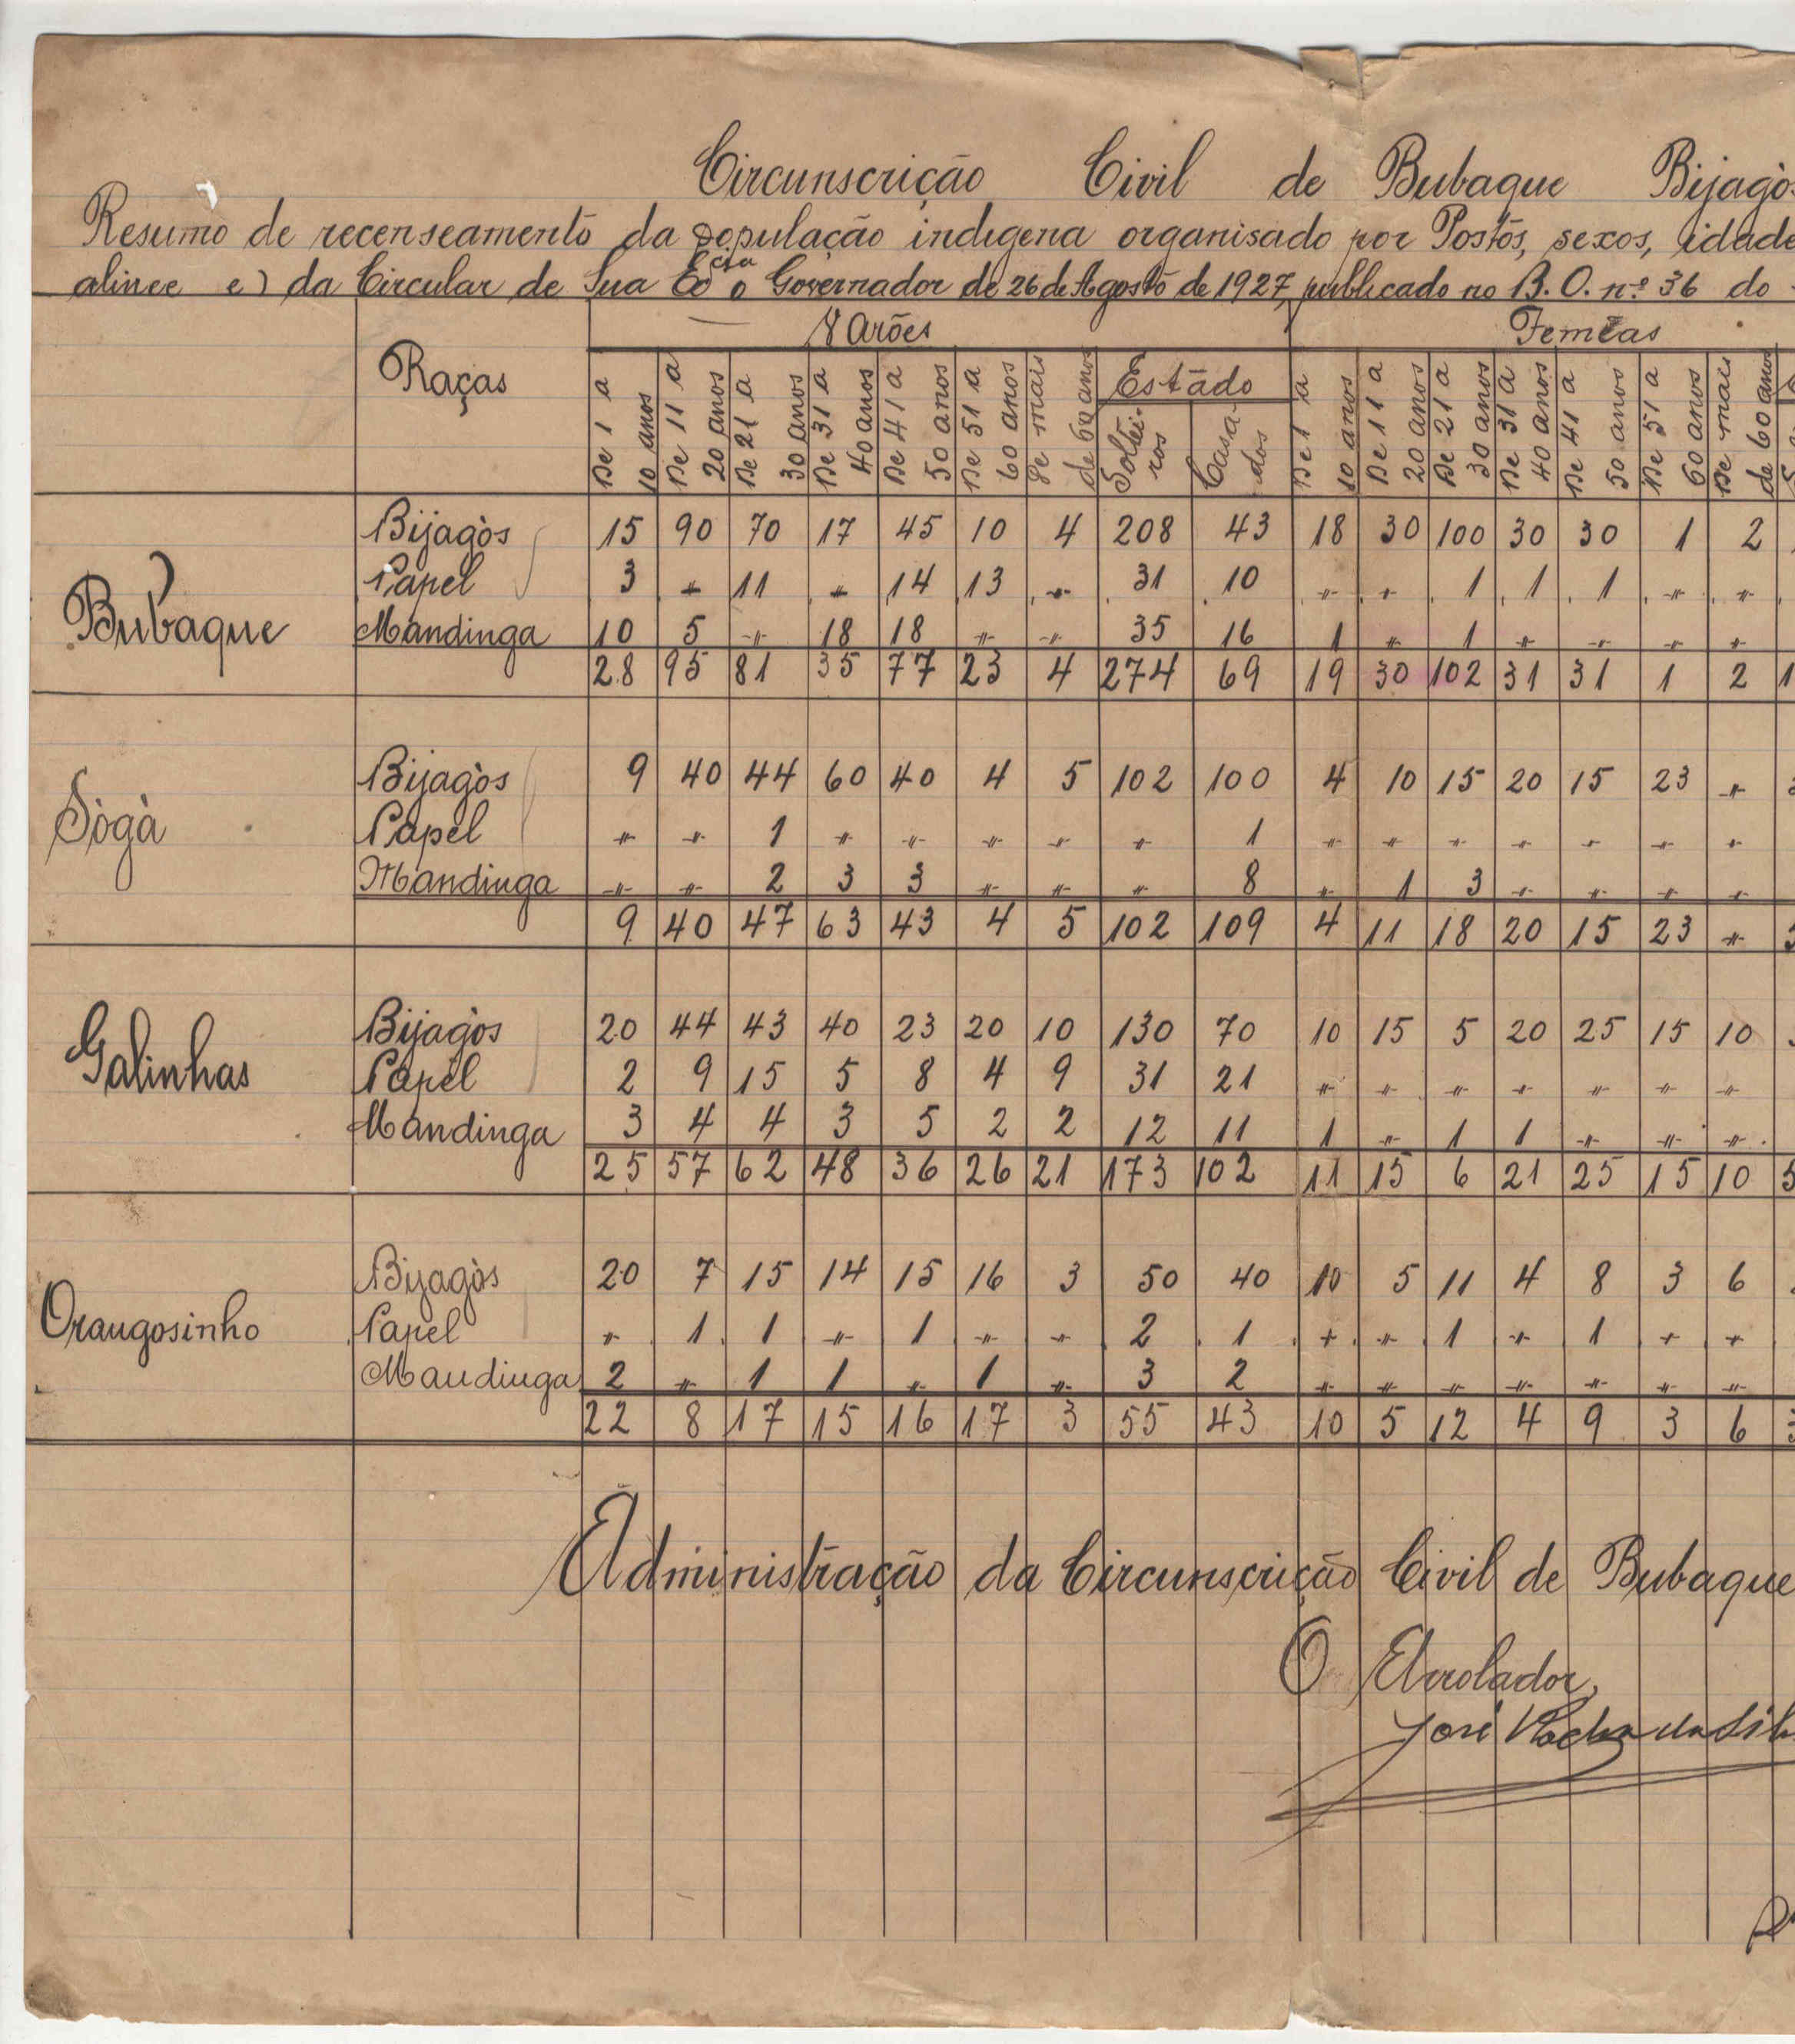 Circunscrição Civil de Bubaque Bijagòs
Resumo de recenseamento da população indigena organisado por Postos, sexos, idade
alinee e) da Circular de Sua Ex.cia o Governador de 26 de Agosto de 1927, publicado no B. O. nº 36 do
Varões Femeas
Raças De 1 a 10 anos De 11 a 20 anos De 21 a 30 anos De 31 a 40 anos De 41 a 50 anos De 51 a 60 anos De mais de 60 anos Estádo Soltei-ros Casa-dos De 1 a 10 anos De 11 a 20 anos De 21 a 30 anos De 31 a 40 anos De 41 a 50 anos De 51 a 60 anos De mais de 60 anos
Bubaque
Bijagòs 15 90 70 17 45 10 4 208 43 18 30 100 30 30 1 2
Papel 3 -"- 11 -"- 14 13 -"- 31 10 -"- -"- 1 1 1 -"- -"-
Mandinga 10 5 -"- 18 18 -"- -"- 35 16 1 -"- 1 -"- -"- -"- -"-
28 95 81 35 77 23 4 274 69 19 30 102 31 31 1 2 1
Sògà
Bijagòs 9 40 44 60 40 4 5 102 100 4 10 15 20 15 23 -"-
Papel -"- -"- 1 -"- -"- -"- -"- -"- 1 -"- -"- -"- -"- -"- -"- -"-
Mandinga -"- -"- 2 3 3 -"- -"- -"- 8 -"- 1 3 -"- -"- -"- -"-
9 40 47 63 43 4 5 102 109 4 11 18 20 15 23 -"-
Galinhas
Bijagòs 20 44 43 40 23 20 10 130 70 10 15 5 20 25 15 10
Papel 2 9 15 5 8 4 9 31 21 -"- -"- -"- -"- -"- -"- -"-
Mandinga 3 4 4 3 5 2 2 12 11 1 -"- 1 1 -"- -"- -"-
25 57 62 48 36 26 21 173 102 11 15 6 21 25 15 10 5
Orangosinho
Bijagòs 20 7 15 14 15 16 3 50 40 10 5 11 4 8 3 6
Papel -"- 1 1 -"- 1 -"- -"- 2 1 -"- -"- 1 -"- 1 -"- -"-
Mandinga 2 -"- 1 1 -"- 1 -"- 3 2 -"- -"- -"- -"- -"- -"- -"-
22 8 17 15 16 17 3 55 43 10 5 12 4 9 3 6
Administração da Circunscrição Civil de Bubaque
O Arrolador,
José Rocha da Sil